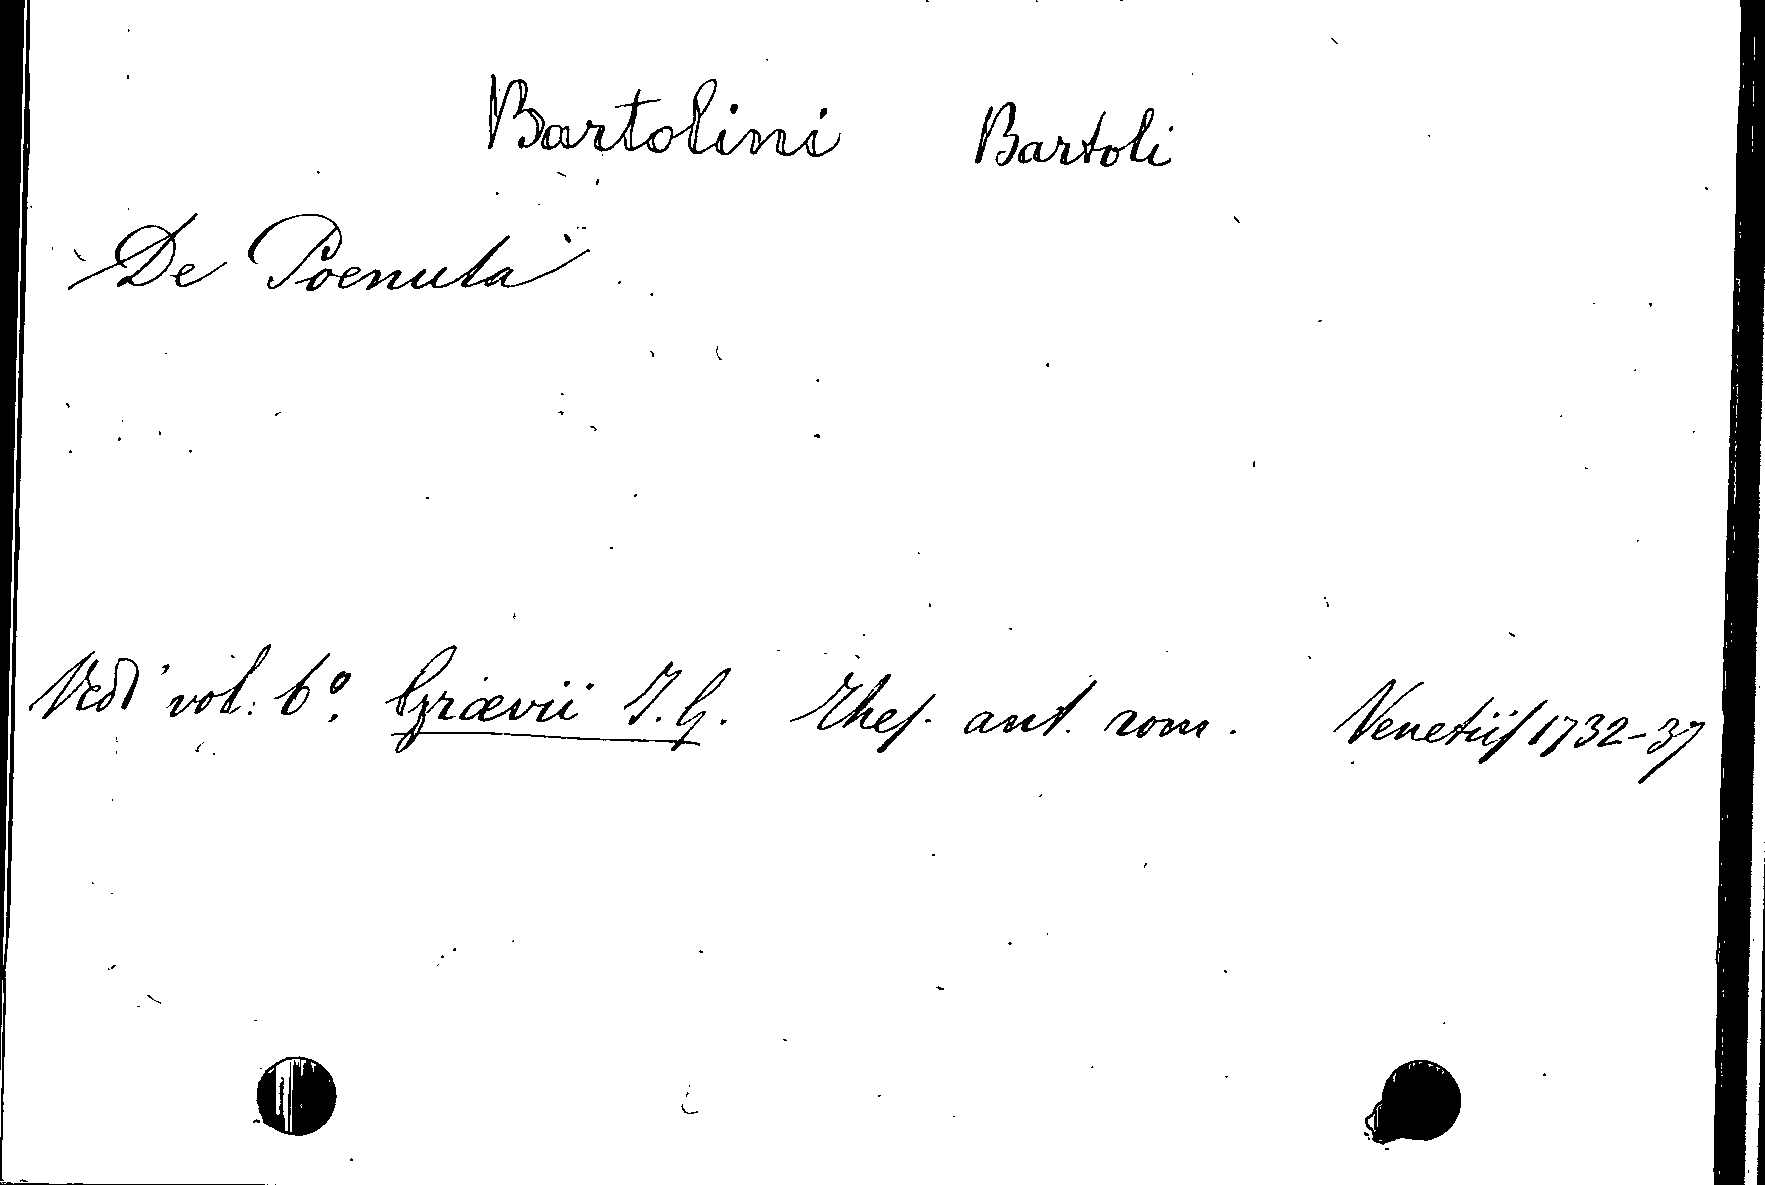 Bartolini Bartoli
De Poenula
Vedi vol. 6º. Grævii J. G. Thes. ant. rom. Venetiis 1732-37